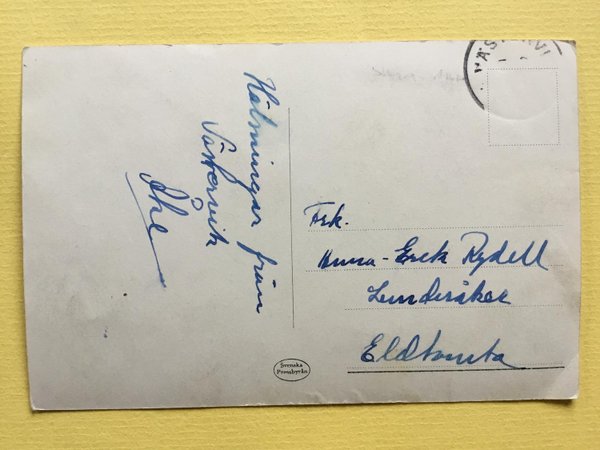 Hälsningar från
Västervik
Åke
Frk.
Anna-Greta Rydell
Lundsåker
Eldtomta
Svenska
Pressbyrån